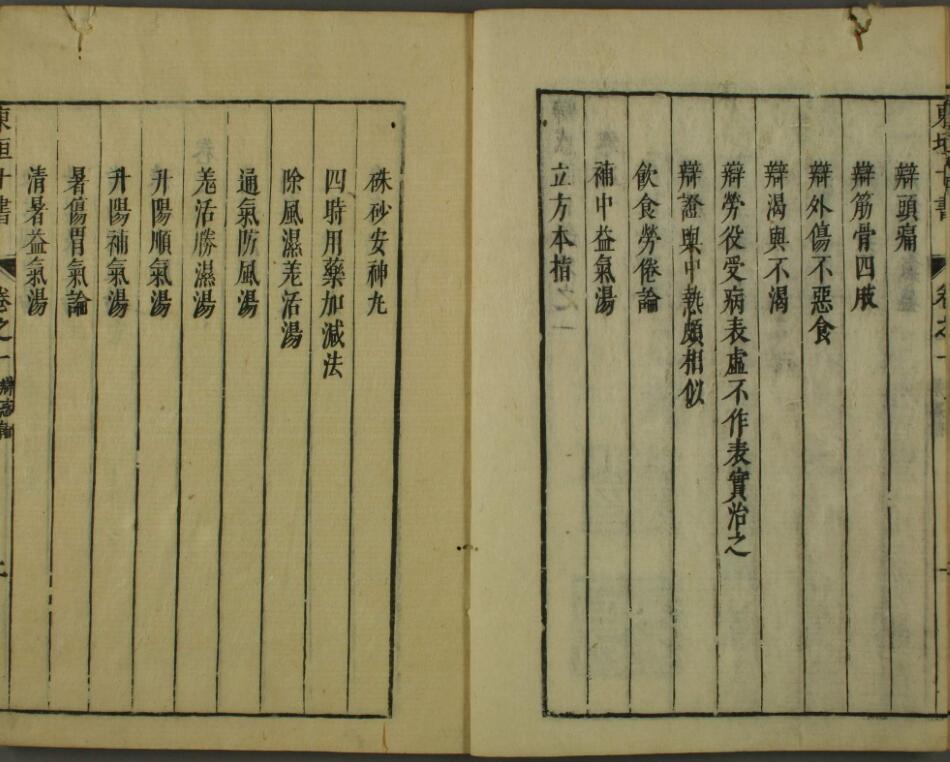 東垣十書
卷之一
辯頭痛
辯筋骨四肢
辯外傷不惡食
辯渴與不渴
辯勞役受病表虛不作表實治之
辯證與中熱頗相似
飲食勞倦論
補中益氣湯
立方本指
硃砂安神丸
四時用藥加減法
除風濕羌活湯
通氣防風湯
羌活勝濕湯
升陽順氣湯
升陽補氣湯
暑傷胃氣論
清暑益氣湯
東垣十書
卷之一